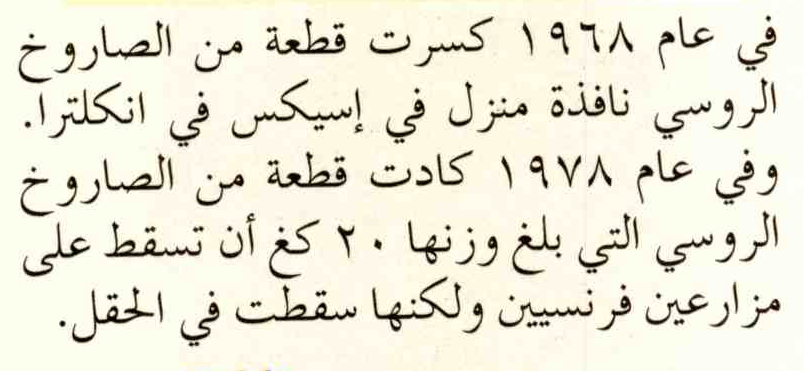 في عام ١٩٦٨ كسرت قطعة من الصاروخ
الروسي نافذة منزل في إسيكس في انكلترا.
وفي عام ١٩٧٨ كادت قطعة من الصاروخ
الروسي التي بلغ وزنها ٢٠ كغ أن تسقط على
مزارعين فرنسيين ولكنها سقطت في الحقل.